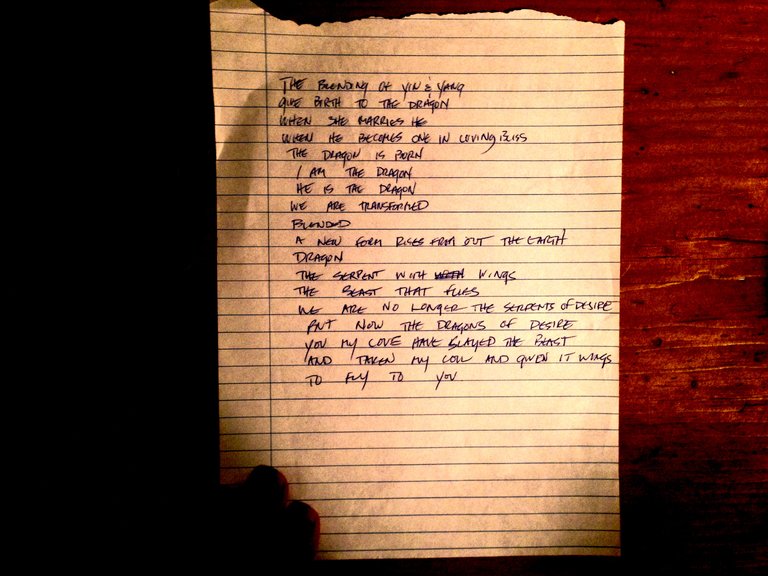 THE BLENDING OF YIN & YANG
GIVE BIRTH TO THE DRAGON
WHEN SHE MARRIES HE
WHEN HE BECOMES ONE IN LOVING BLISS
THE DRAGON IS BORN
I AM THE DRAGON
HE IS THE DRAGON
WE ARE TRANSFORMED
BLENDED
A NEW FORM RISES FROM OUT THE EARTH
DRAGON
THE SERPENT WITH WINGS
THE BEAST THAT FLIES
WE ARE NO LONGER THE SERPENTS OF DESIRE
BUT NOW THE DRAGONS OF DESIRE
YOU MY LOVE HAVE SLAYED THE BEAST
AND TAKEN MY AND GIVEN IT WINGS
TO FLY TO YOU